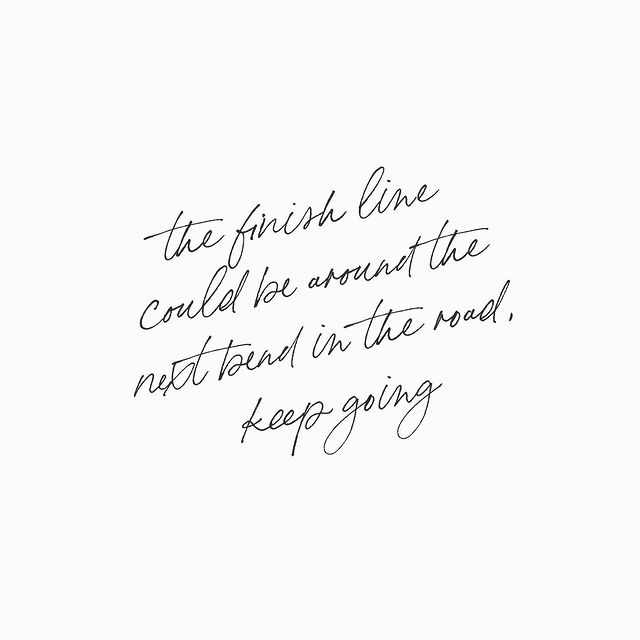 the finish line
could be around the
next bend in the road.
keep going